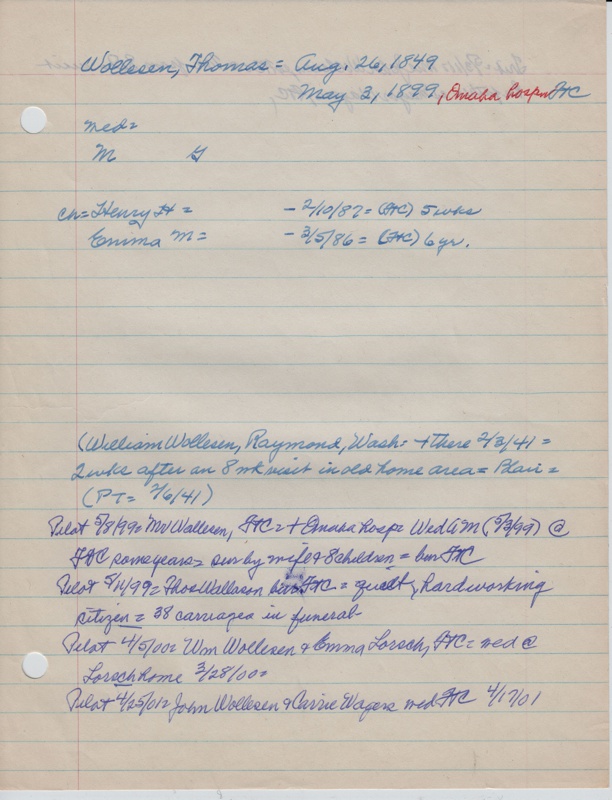 Wollesen, Thomas = Aug. 26, 1849
May 3, 1899, Omaha hosp. FtC
med=
M G
ch= Henry H = - 2/10/87 = (FtC) 5 wks
Emma M = - 3/5/86 = (FtC) 6 yr.
(William Wollesen, Raymond, Wash. + there 2/3/41 =
2 wks after an 8 mk visit in old home area = Blair =
(PT= 2/6/41)
Pilot 5/8/99= Mr Wollesen, FtC = + Omaha hosp Wed AM (5/3/99) @
FtC some years = sur by wife & 8 children = bur FtC
Pilot 5/14/99= Thos Wollason FtC = quiet, hardworking
citizen = 38 carriages in funeral-
Pilot 4/5/00= Wm Wollesen & Emma Lorsch, FtC = med @
Lorsch home 3/28/00=
Pilot 4/25/01= John Wollesen & Carrie Wagers med FtC 4/17/01